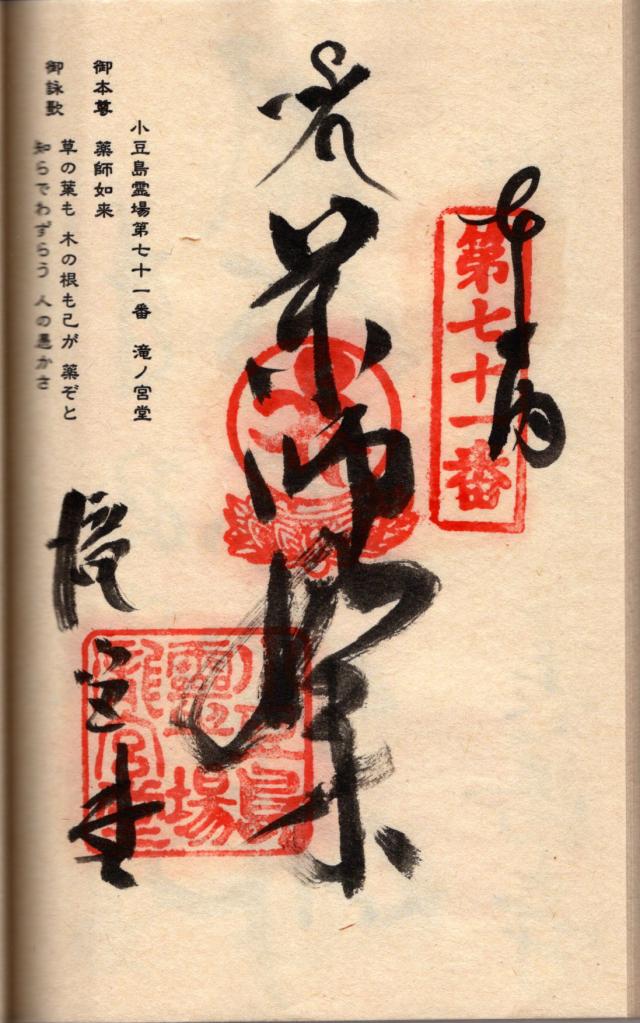 奉納
第七十一番
薬師如来
小豆島霊場第七十一番 滝ノ宮堂
御本尊 薬師如来
御詠歌 草の葉も 木の根も己が 薬ぞと
知らでわずらう 人の愚かさ
滝宮堂
小豆島
靈場